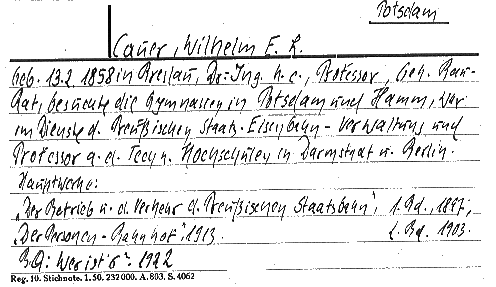 Potsdam
Cauer, Wilhelm E. L.
Geb. 13.2. 1858 in Breslau, Dr.-Ing. h.c., Professor, Geh. Bau-
Rat, besuchte die Gymnasien in Potsdam und Hamm, war
im Dienste d. Preußischen Staats-Eisenbahn-Verwaltung und
Professor a.d. Techn. Hochschulen in Darmstadt u. Berlin.
Hauptwerke:
"Der Betrieb u. d. Verkehr d. Preußischen Staatsbahn", 1. Bd., 1897,
"Der Personen-Bahnhof": 1913. 2. Bd. 1903.
B.Q.: Wer ist's: 1922
Reg. 10. Stichnote. 1. 50. 232000. A. 803. S. 4062